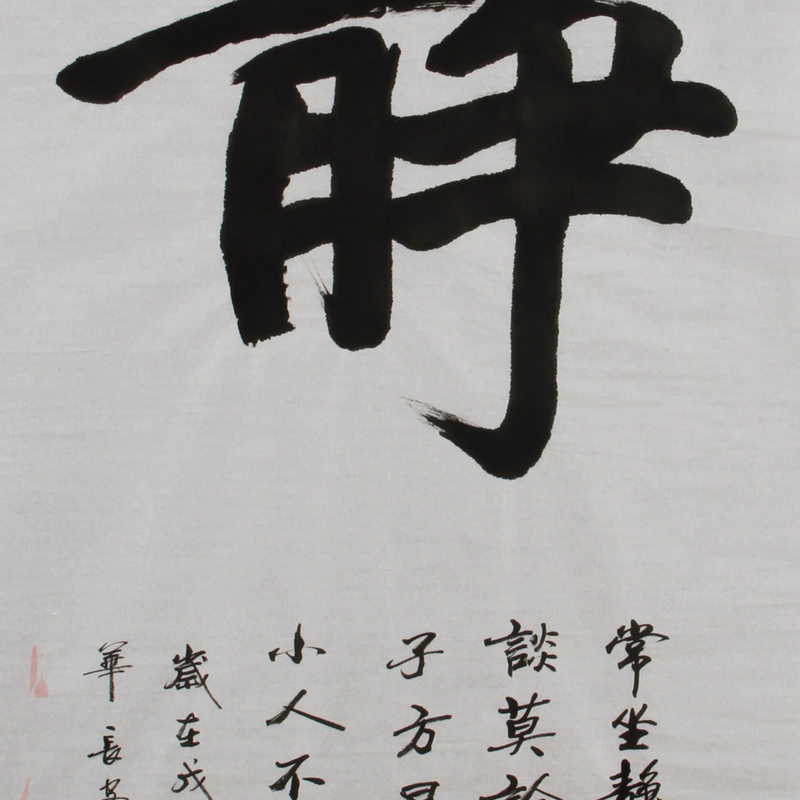 靜
常坐靜
談莫論
子方
小人不
歲在戊
華長安